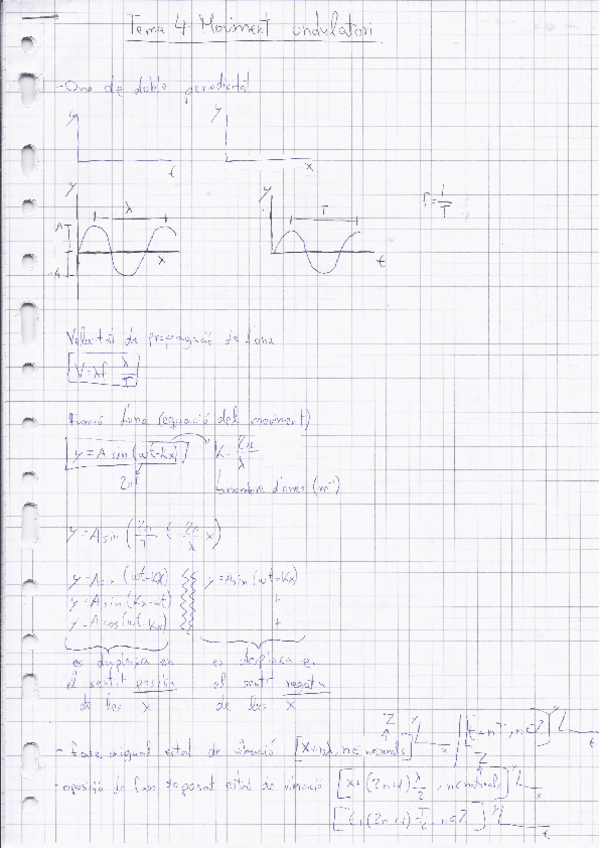 Tema 4: Moviment ondulatori
- Ona de doble periodicitat
y y
t x
y λ y T f=1/T
A
x t
-A
Velocitat de propagació de l'ona
V=λf λ/T
Funció d'ona (equació del moviment)
y=A sin(wt-kx) K=2π/λ
2πf nombre d'ones (m⁻¹)
y=A sin(2π/T t-2π/λ x)
y=A sin(wt-kx) y=A sin(wt+kx)
y=A sin(kx-wt) +
y=A cos(wt-kx) +
es desplaça en es desplaça en
el sentit positiu el sentit negatiu
de les x de les x
- Fase igual estat de vibració [x=nλ, n∈naturals] [t=nT, n∈Z]
- oposició de fase oposat estat de vibració [x=(2n+1)λ/2, n∈naturals]
[t=(2n+1)T/2, n∈Z]